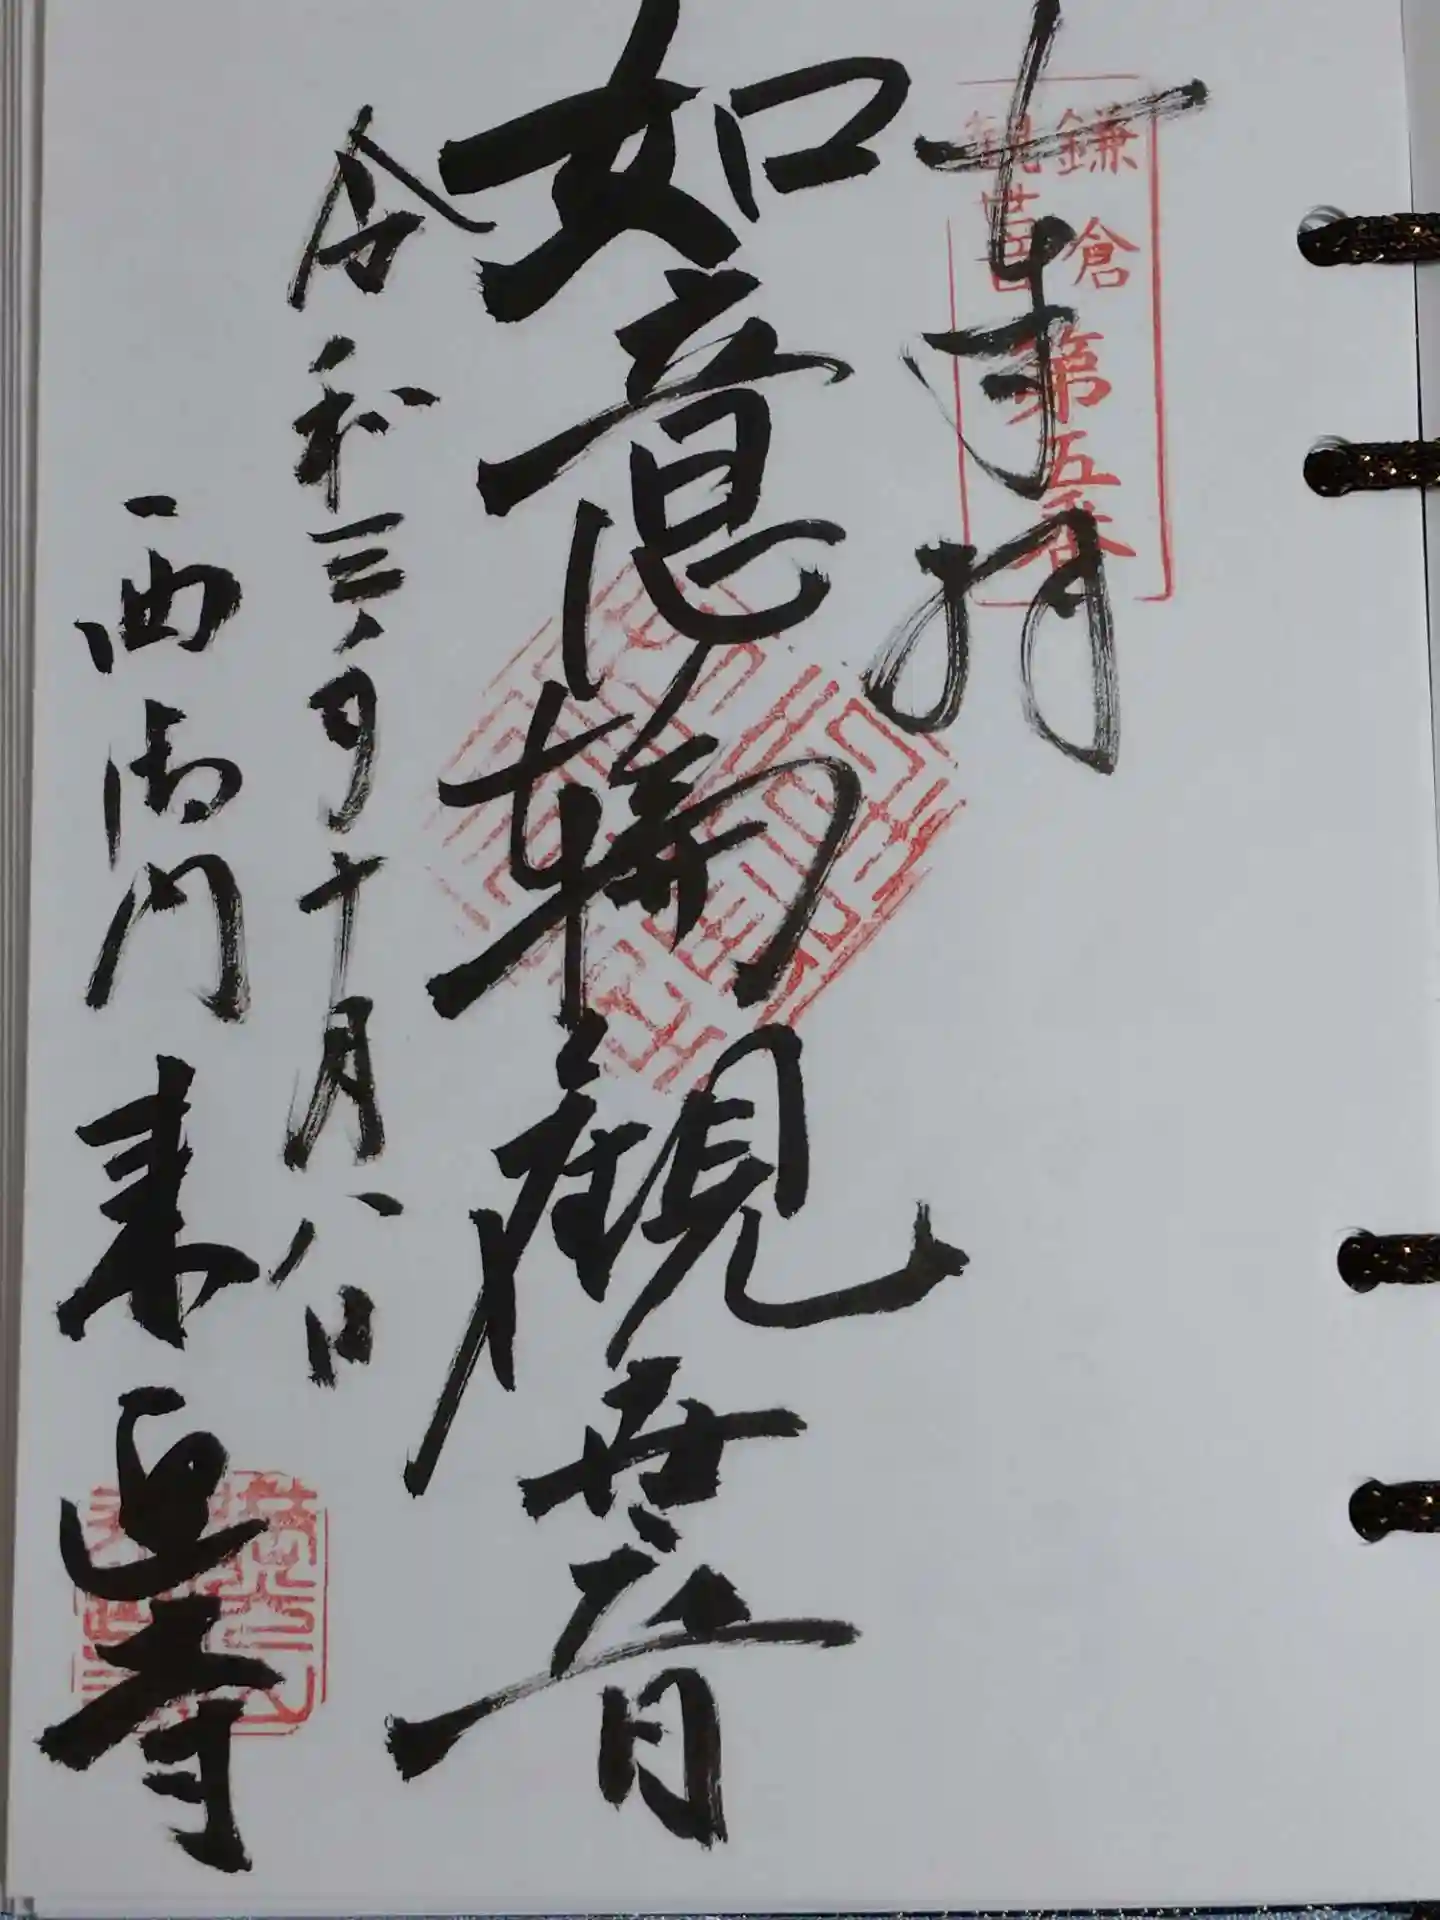 奉拝
鎌倉
観世音
第五番
如意輪観世音
令和三年十月八日
西御門
来迎寺